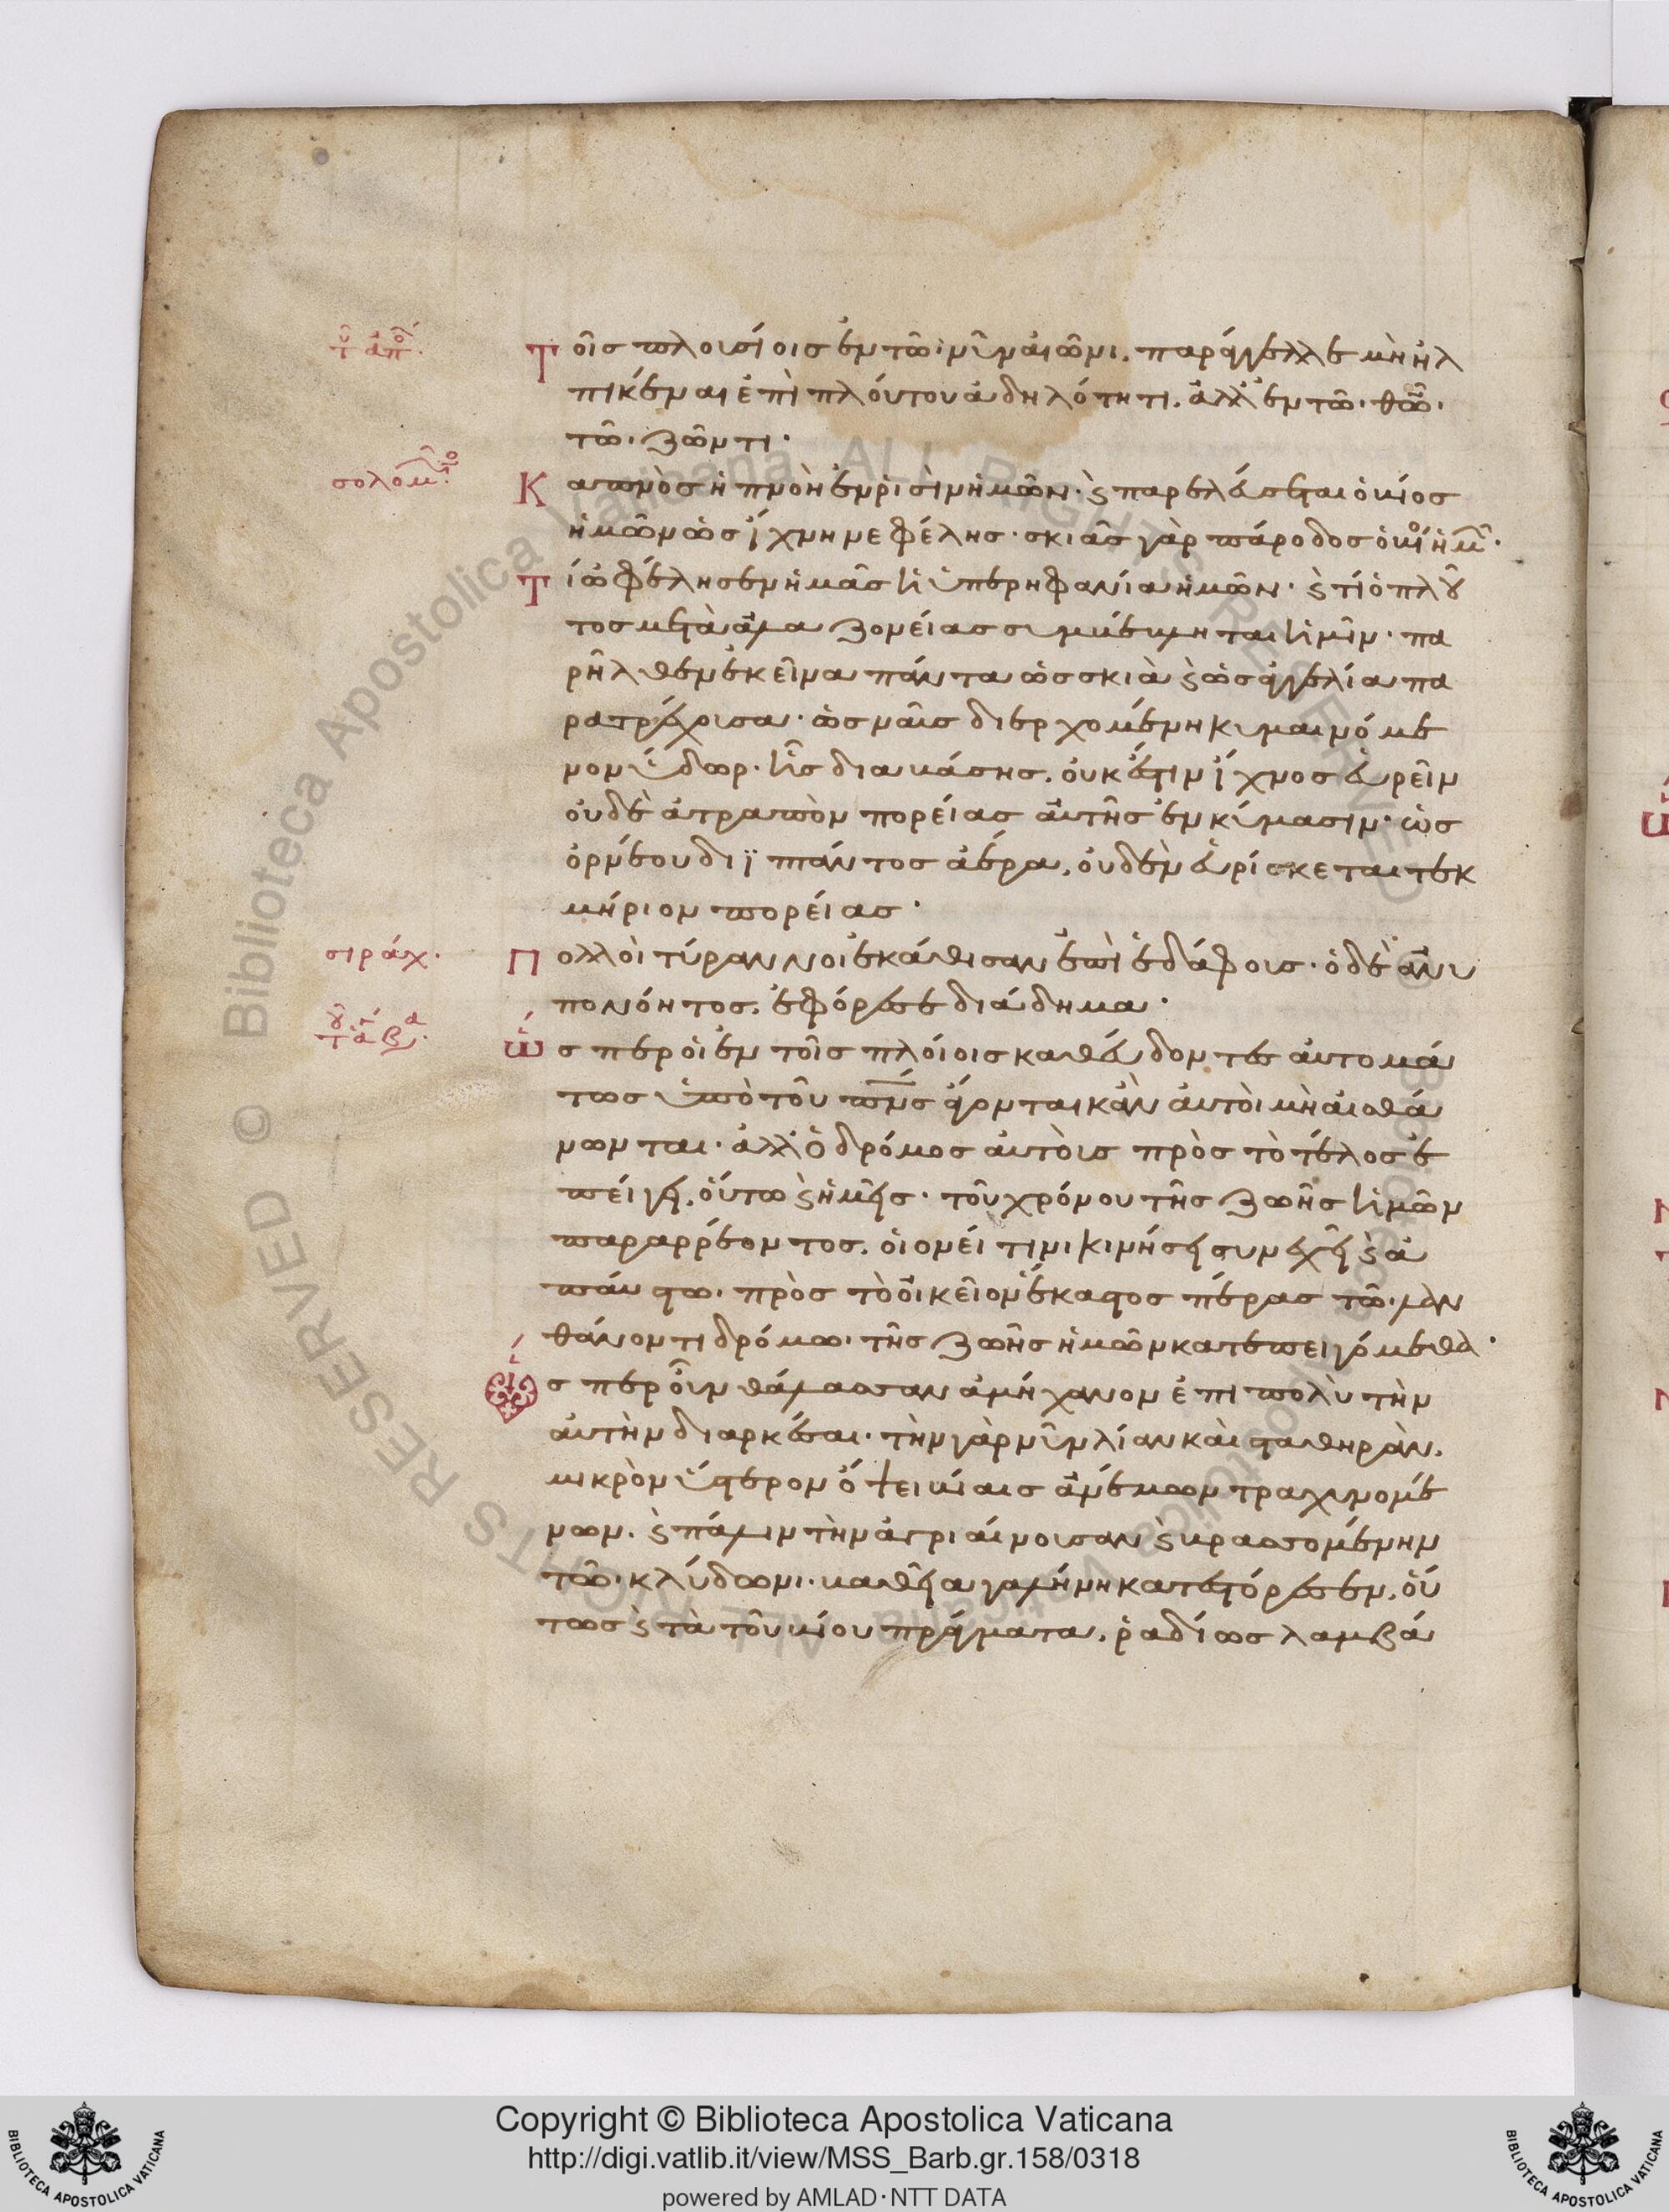 τοῦ ἀποστόλ
Τοῖς πλουσίοις ἐν τῶ νῦν αἰῶνι, παράγγελλε μὴ ἠλ
πικέναι ἐπὶ πλούτου ἀδηλότητι, ἀλλ' ἐν τῶ θῶ
τῶ ζῶντι·
σολομῶντο
Καπνὸς ἡ πνοὴ ἐν ῥισὶν ἡμῶν· ϗ παρελεύσεται ὁ βίος
ἡμῶν ὡς ἴχνη νεφέλης· σκιᾶς γὰρ πάροδος ὁ βίο ἡμῶν·
Τί ὠφέλησεν ἡμᾶς ἡ ὑπερηφανία ἡμῶν· ϗ τί ὁ πλοῦ
τος μετὰ ἀλαζονείας συμβέβληται ἡμῖν· πα
ρῆλθεν ἐκεῖνα πάντα ὡς σκιὰ ϗ ὡς ἀγγελία πα
ρατρέχουσα· ὡς ναῦς διερχομένη κυμαινόμε
νον ὕδωρ· ἧς διαβάσης, οὐκ ἔστιν ἴχνος εὑρεῖν
οὐδὲ ἀτραπὸν πορείας αὐτῆς ἐν κύμασιν· ὡς
ὀρνέου διϊπτάντος ἀέρα, οὐδὲν εὑρίσκεται τεκ
μήριον πορείας·
σιράχ·
Πολλοὶ τύραννοι ἐκάθισαν ἐπὶ ἐδάφους· ὁ δὲ ἀνυ
πονόητος, ἐφόρεσε διάδημα·
τοῦ ἁγ βα
Ὥσπερ οἱ ἐν τοῖς πλοίοις καθεύδοντες αὐτομά
τως ὑπὸ τοῦ πνς ἄγονται κἂν αὐτοὶ μὴ αἰσθά
νωνται· ἀλλ' ὁ δρόμος αὐτοὺς πρὸς τὸ τέλος ἐ
πείγει, οὕτω ϗ ἡμεῖς· τοῦ χρόνου τῆς ζωῆς ἡμῶν
παραρρέοντος, οἱονεί τινι κινήσει συνεχεῖ ϗ ἀ
παύστω· πρὸς τὸ οἰκεῖον ἕκαστος πέρας τῶ λαν
θάνοντι δρόμω· τῆς ζωῆς ἡμῶν κατεπειγόμεθα·
Ὥσπερ οὖν θάλασσαν ἀμήχανον ἐπιπολὺ τὴν
αὐτὴν διαρκέσαι· τὴν γὰρ νῦν λίαν καὶ σταθηράν,
μικρὸν ὕστερον ὄψει βίαις ἀνέμων τραχυνομέ
νων. ϗ πάλιν τὴν ἀγριαίνουσαν ϗ βρασσομένην
τῶ κλύδωνι· βαθεῖα γαλήνη κατεστόρεσεν, οὕ
τως ϗ τὰ τοῦ βίου πράγματα, ῥαδίως λαμβά
Copyright © Biblioteca Apostolica Vaticana
http://digi.vatlib.it/view/MSS_Barb.gr.158/0318
powered by AMLAD·NTT DATA